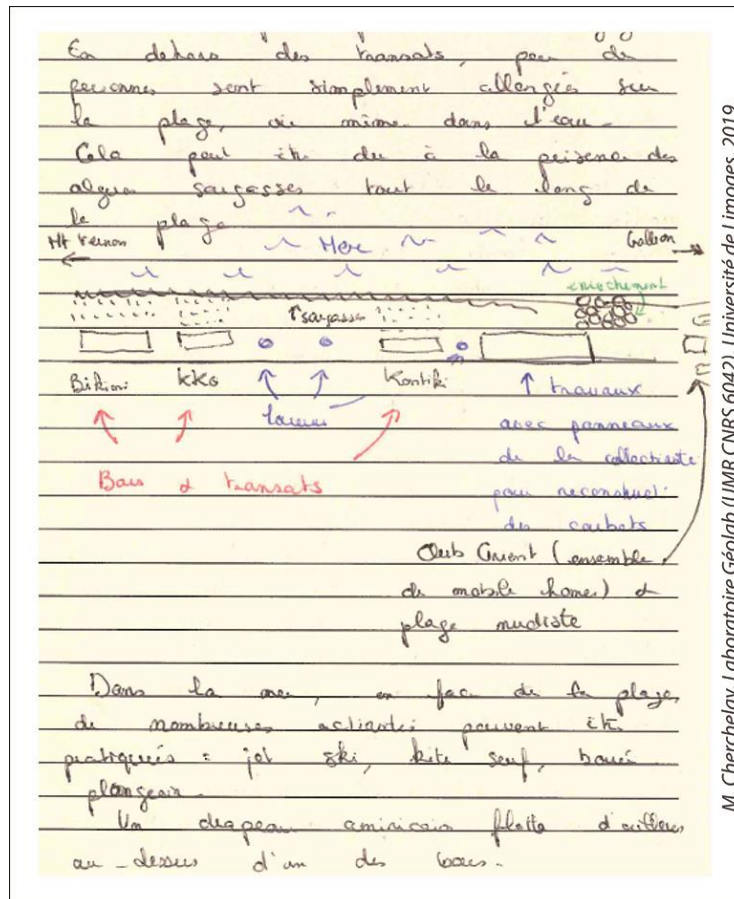 En dehors des transats, peu de
personnes sont simplement allongées sur
la plage, ou même dans l'eau.
Cela peut être du à la présence des
algues sargasses tout le long de
la plage
Mt Vernon Mer Galleon
enrochement
sargasses
Bikini KKO Kontiki travaux
loueurs avec panneaux
de la collectivité
Bars & transats pour reconstruct°
des carbets
Club Orient (ensemble
de mobile homes) &
plage nudiste
Dans la mer, en face de la plage,
de nombreuses activités peuvent être
pratiquées : jet ski, kite surf, bouée
plongeoir.
Un drapeau américain flotte d'ailleurs
au-dessus d'un des bars.
M. Cherchelay, Laboratoire Géolab (UMR CNRS 6042), Université de Limoges, 2019